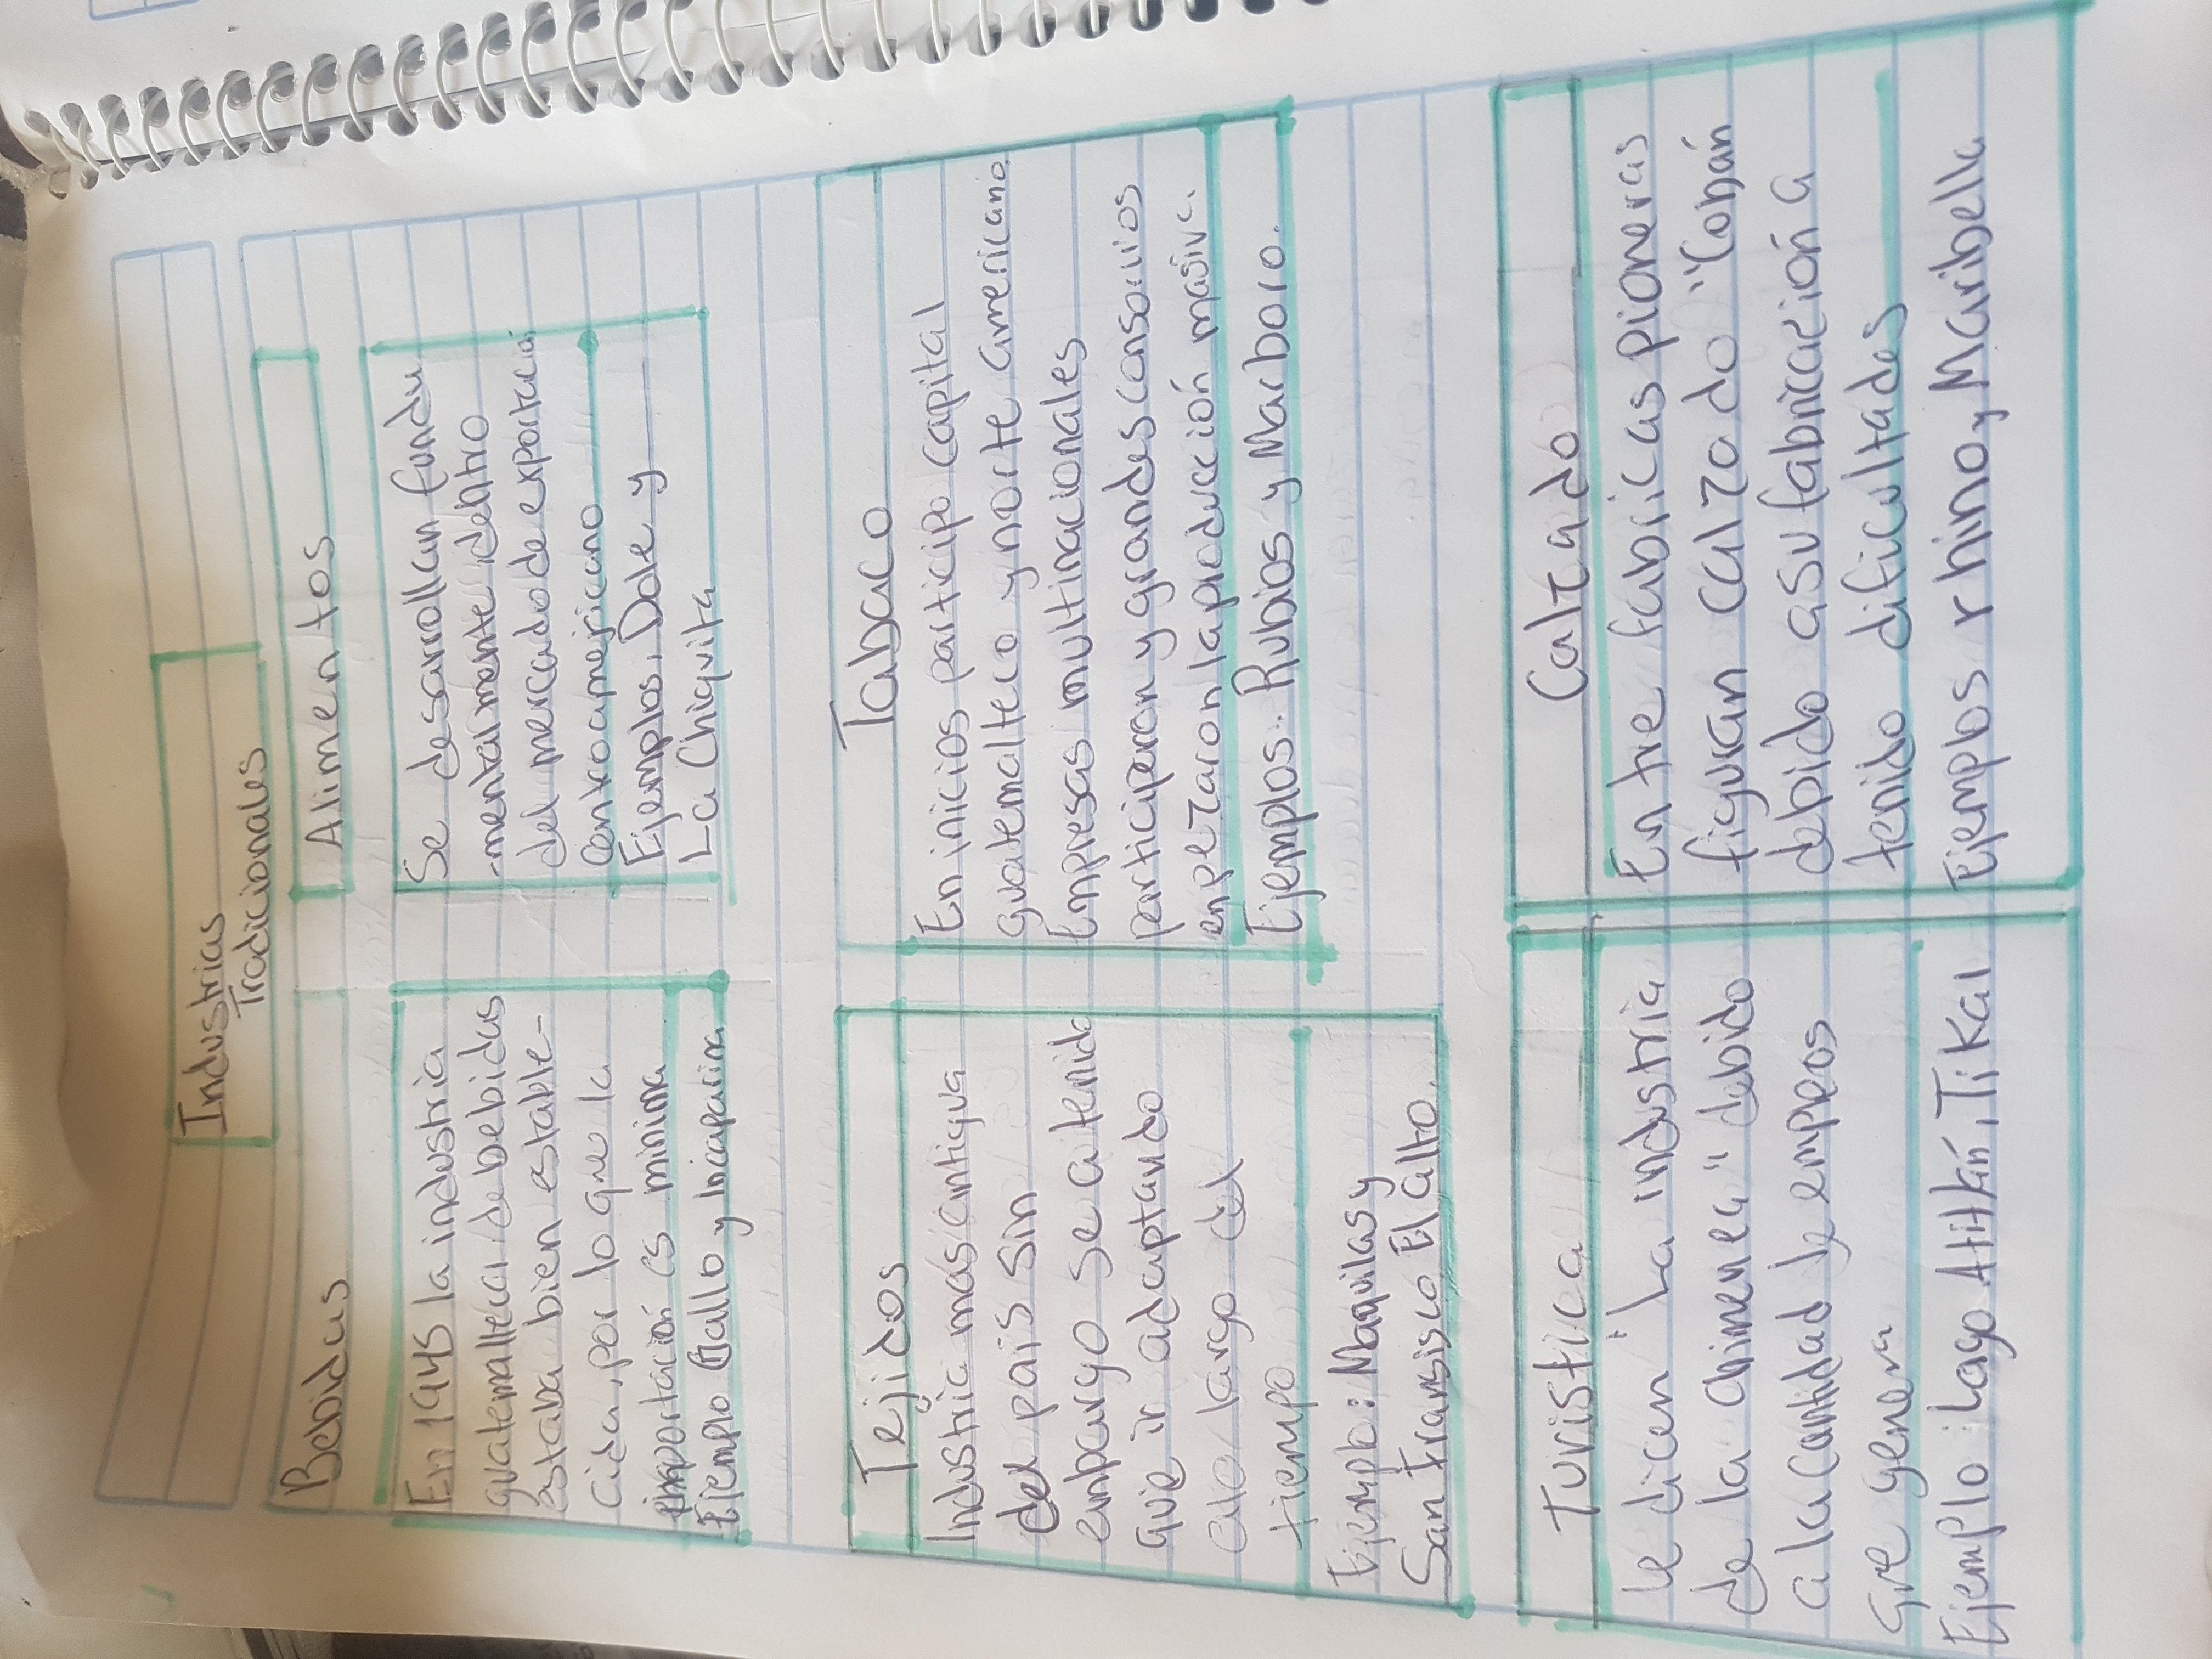 Industrias
Tradicionales
Bebidas
En 1945 la industria
guatemalteca de bebidas
estaba bien estable-
cida, por lo que la
importación es minima
Ejemplo Gallo y Incaparina
Alimentos
Se desarrollan funda
-mentalmente dentro
del mercado de exportació
Centroamericano
Ejemplos. Dole y
La Chiquita
Tejidos
Industria más antigua
del país sin
embargo se a tenido
que ir adaptando
a lo largo del
tiempo
Ejemplo: Maquilas y
San Fransisco El alto.
Tabaco
En inicios participo capital
guatemalteco y norte americano
Empresas multinacionales
participaron y grandes consorios
empezaron la producción masiva.
Ejemplos. Rubios y Marboro.
Turistica
le dicen "La industria
de la chimenea" debido
a la cantidad de empros
que genera
Ejemplo: Lago Atitlán, Tikal
Calzado
Entre fabricas pioneras
figuran calzado "Cobán
debido a su fabricación a
tenido dificultades
Ejemplos rhino y Maribella